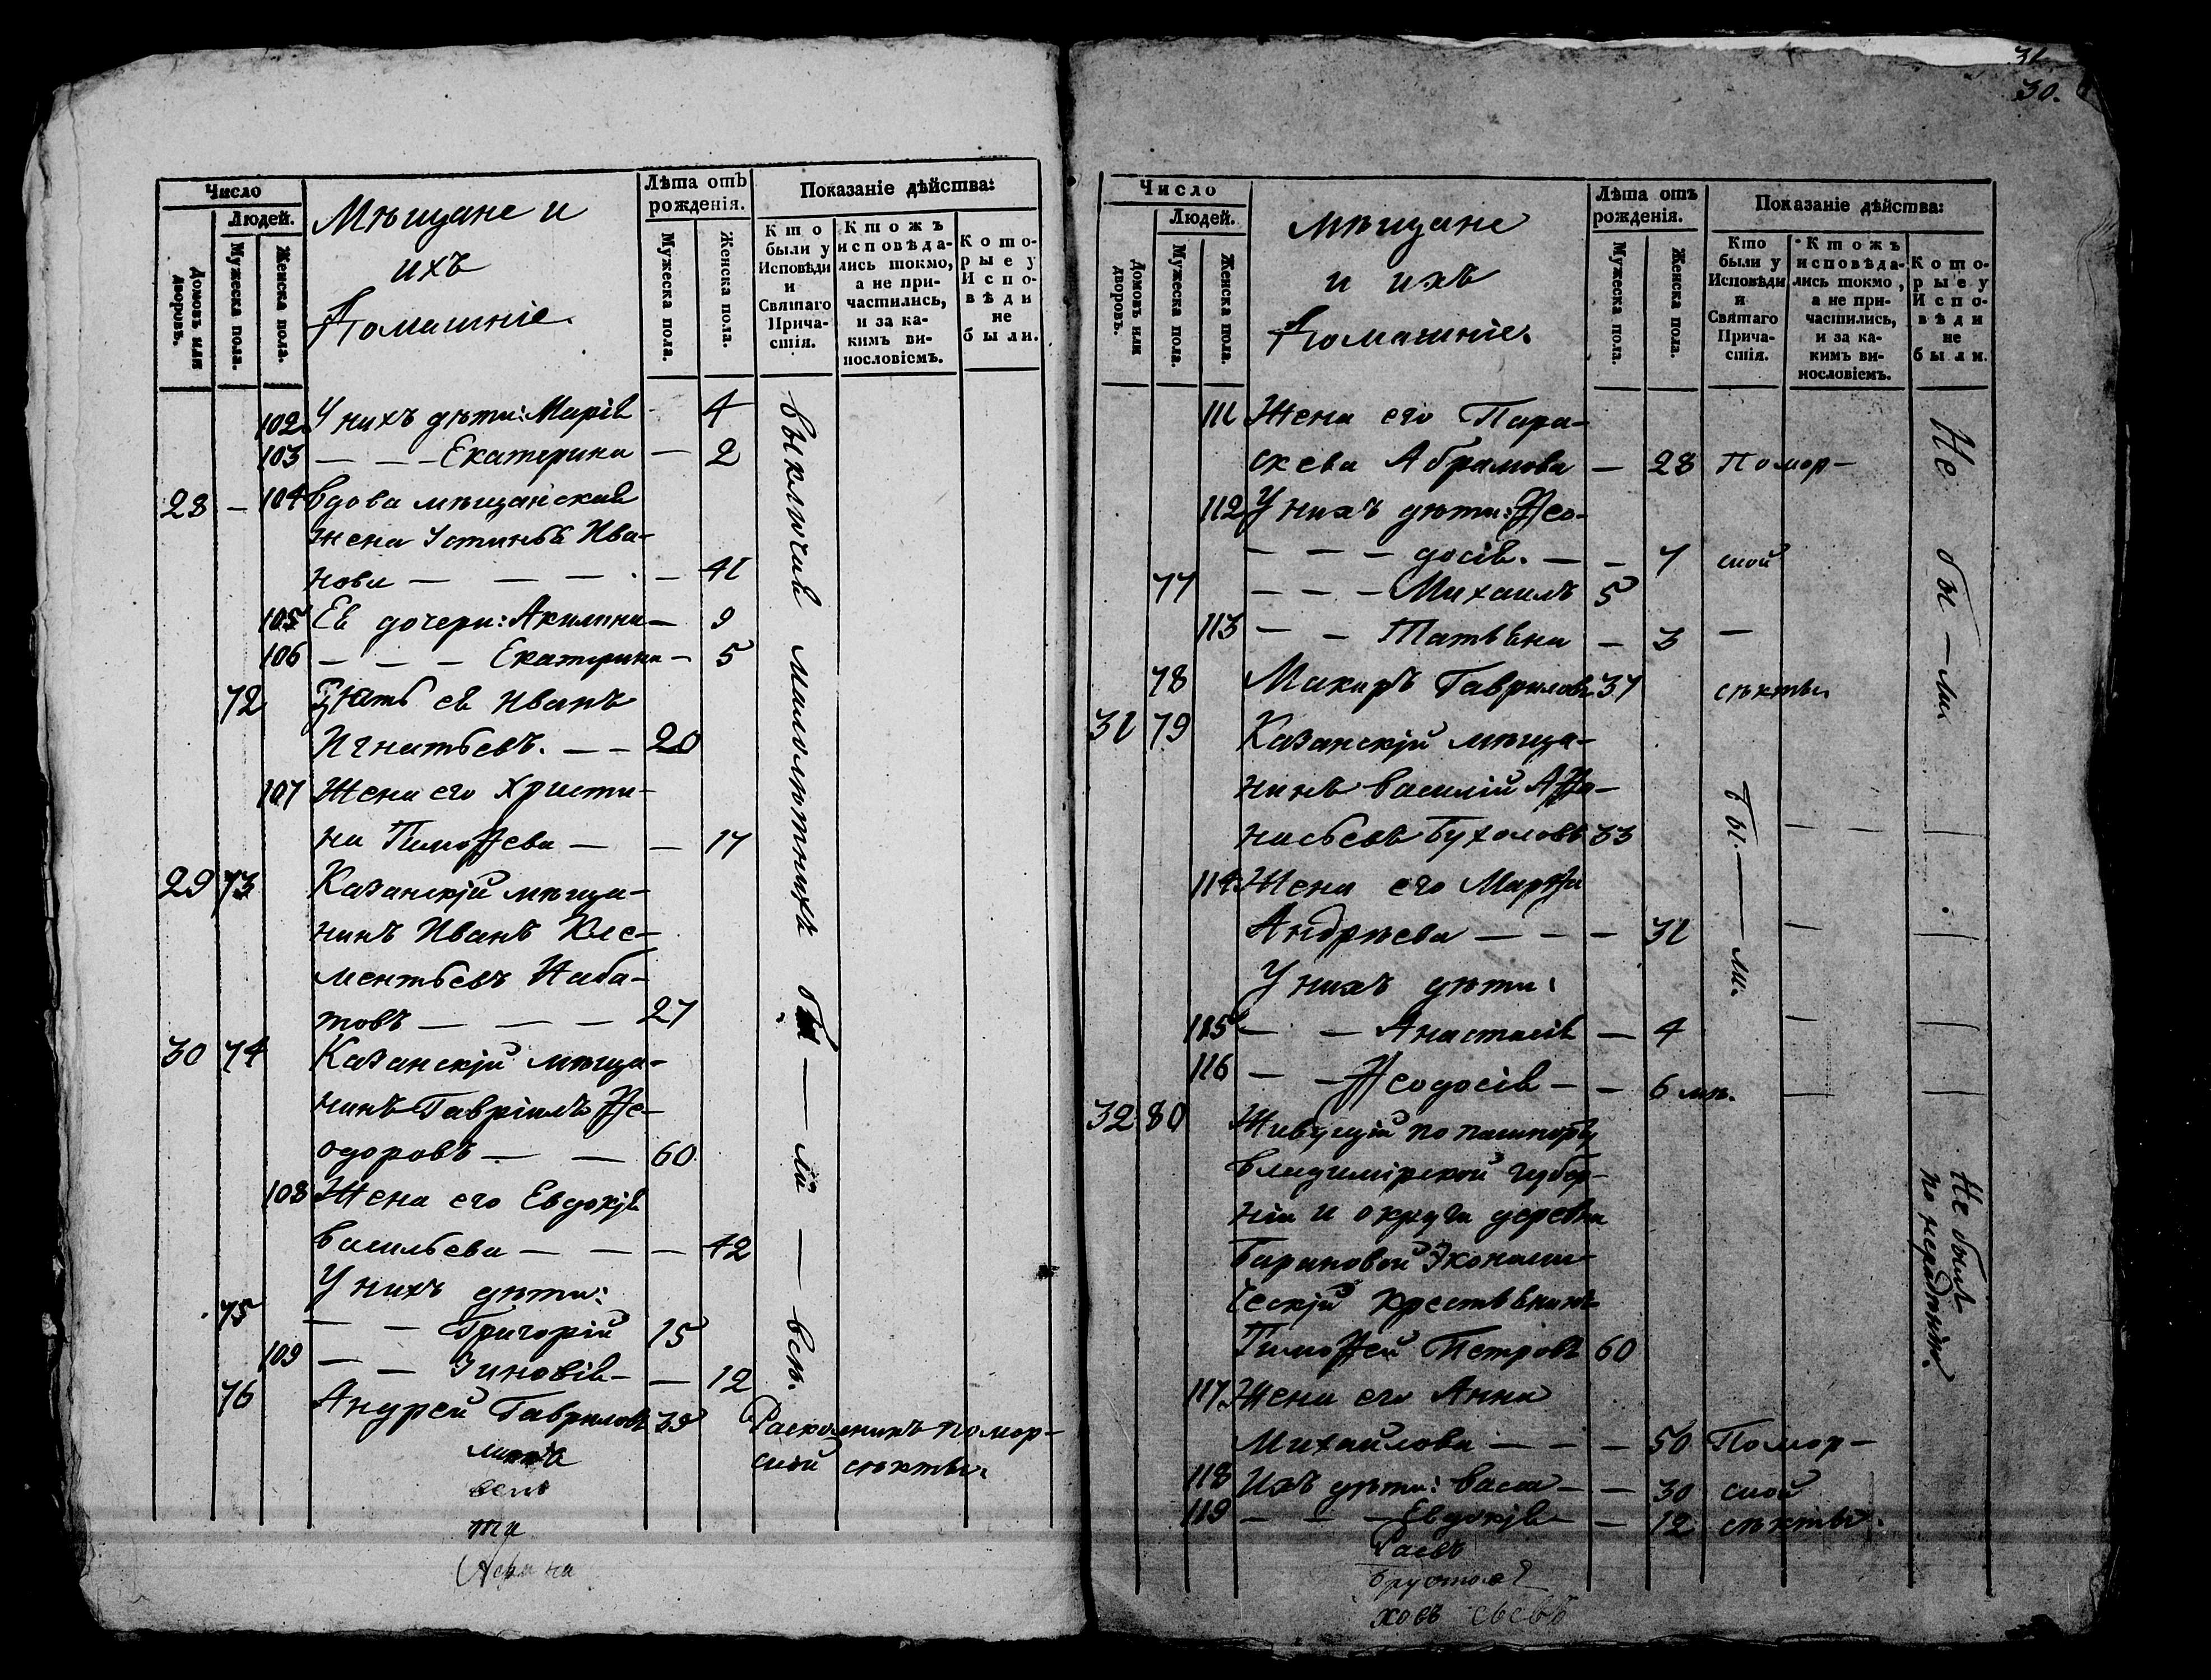 Число
Людей.
Домовъ или дворовъ.
Мужеска пола.
Женска пола.
Мѣщане и
ихъ
Домашніе.
Лѣта отъ рожденія.
Мужеска пола.
Женска пола.
Показаніе дѣйства:
Кто были у Исповѣди и Святаго Причастія.
Ктожъ исповѣдались токмо, а не причастились, и за какимъ винословіемъ.
Которые у Исповѣди не были.
102 У нихъ дѣти: Марія — 4
103 — — — Екатерина — 2
28 — 104 Вдова мѣщанская
жена Устинья Ива-
нова — — — — 41
105 Ея дочери: Акилина — 9
106 — — — Екатерина — 5
72 Зять ея Иванъ
Игнатьевъ. — — 20
107 Жена его Христи-
на Тимофеева — — 17
29 73 Казанскій мѣща-
нинъ Иванъ Кле-
ментьевъ Наба-
товъ — — — 27
30 74 Казанскій мѣща-
нинъ Гавріилъ Ѳе-
одоровъ — — 60
108 Жена его Евдокія
Васильева — — — 42
У нихъ дѣти:
75 — — Григорій 15
109 — — Зиновія — — 12
76 Андрей Гавриловъ 39 Раскольникъ помор-
ской сѣкты.
выключая малолѣтнихъ бы — ли — всѣ.
31
30.
Число
Людей.
Домовъ или дворовъ.
Мужеска пола.
Женска пола.
мѣщане
и ихъ
Домашніе.
Лѣта отъ рожденія.
Мужеска пола.
Женска пола.
Показаніе дѣйства:
Кто были у Исповѣди и Святаго Причастія.
Ктожъ исповѣдались токмо, а не причастились, и за какимъ винословіемъ.
Которые у Исповѣди не были.
111 Жена его Пара-
скева Абрамова — 28 Помор-
112 У нихъ дѣти: Ѳео-
— — — досія. — — 7 ской
77 — — — Михаилъ 5
113 — — Татьяна — 3 —
78 Макаръ Гавриловъ 37 сѣкты
31 79 Казанскій мѣща-
нинъ Василій Аѳа-
насьевъ Бухаловъ 33
114 Жена его Марѳа
Андрѣева — — — 31
У нихъ дѣти:
115 — — Анастасія — 4
116 — — Ѳеодосія — — 6 мѣ.
32 80 Живущій по пашпорту
Владимірской губер-
ніи и округа деревни
Бариновой Экономи-
ческій крестьянинъ
Тимоѳей Петровъ 60
117 Жена его Анна
Михайлова — — — 50 Помор-
118 Ихъ дѣти: Васса — — 30 ской
119 — — — Евдокія — — 12 сѣкты.
Не бы — ли
Бы. — — ли.
Не были
по нерадѣнію.